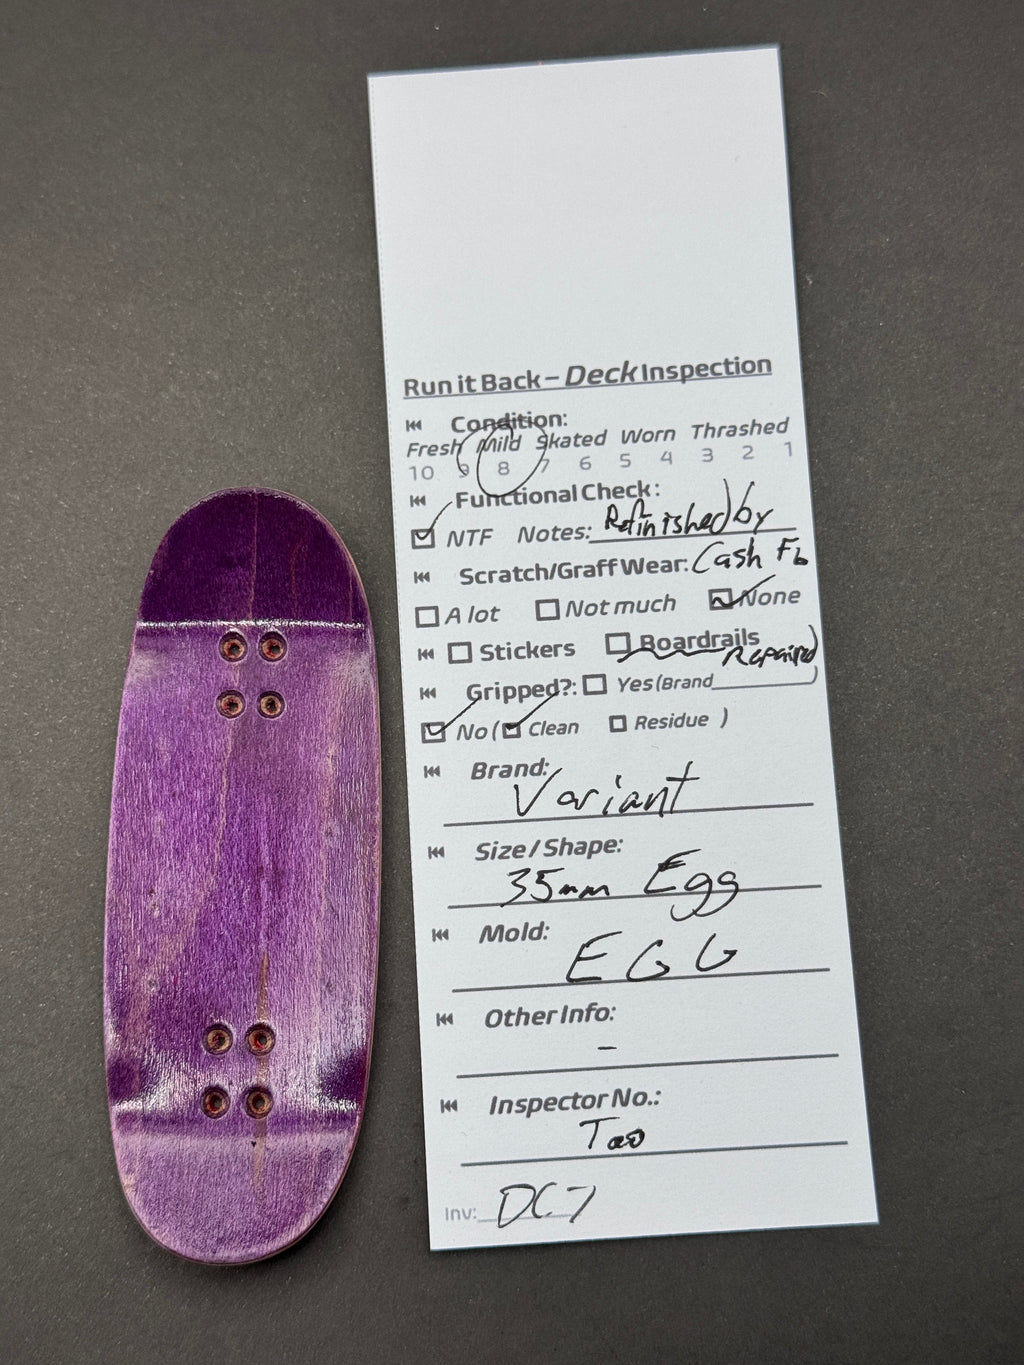 Run it Back – Deck Inspection
Condition:
Fresh Mild Skated Worn Thrashed
10 9 8 7 6 5 4 3 2 1
Functional Check:
NTF Notes: Refinished by
Scratch/Graff Wear: Cash Fb
A lot Not much None
Stickers Boardrails
Repaired
Gripped?: Yes (Brand )
No ( Clean Residue )
Brand:
Variant
Size / Shape:
35mm Egg
Mold:
EGG
Other Info:
–
Inspector No.:
Tao
Inv: DC7